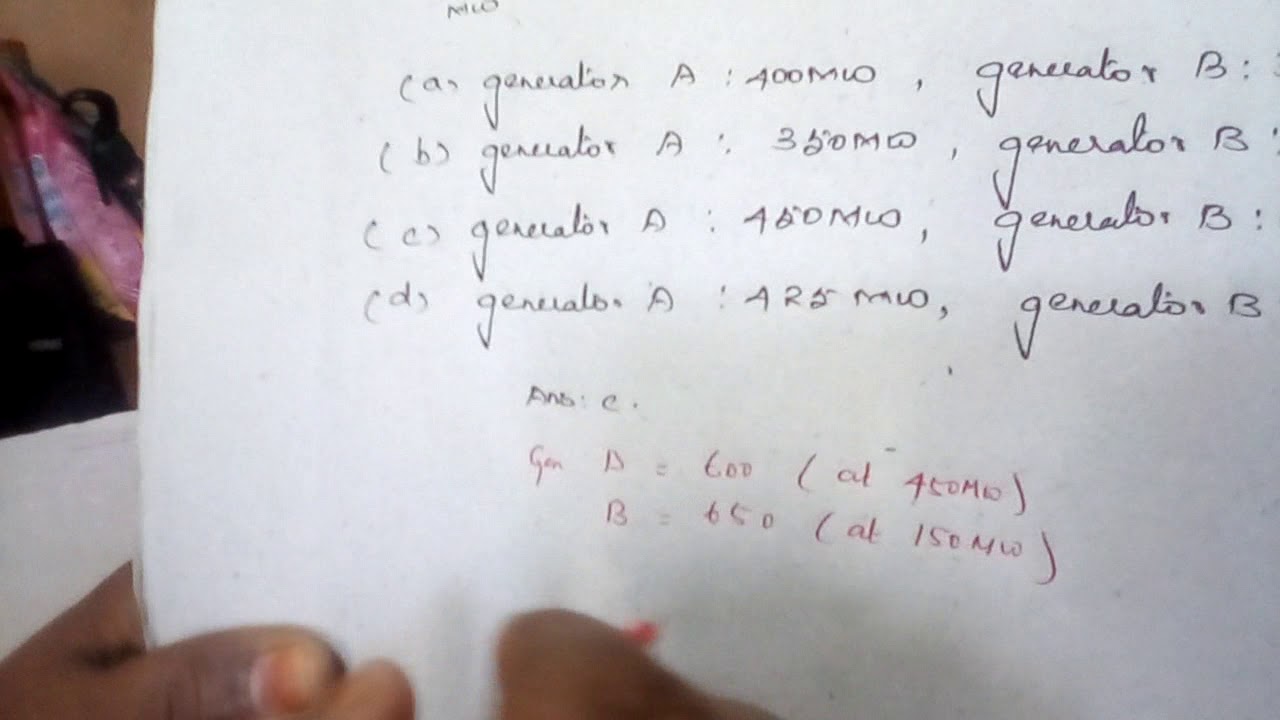 MW
(a) generator A : 400MW , generator B :
(b) generator A : 350MW , generator B :
(c) generator A : 450MW , generator B :
(d) generator A : 425 MW, generator B
Ans: c.
Gen A = 600 ( at 450MW)
B = 650 (at 150MW)